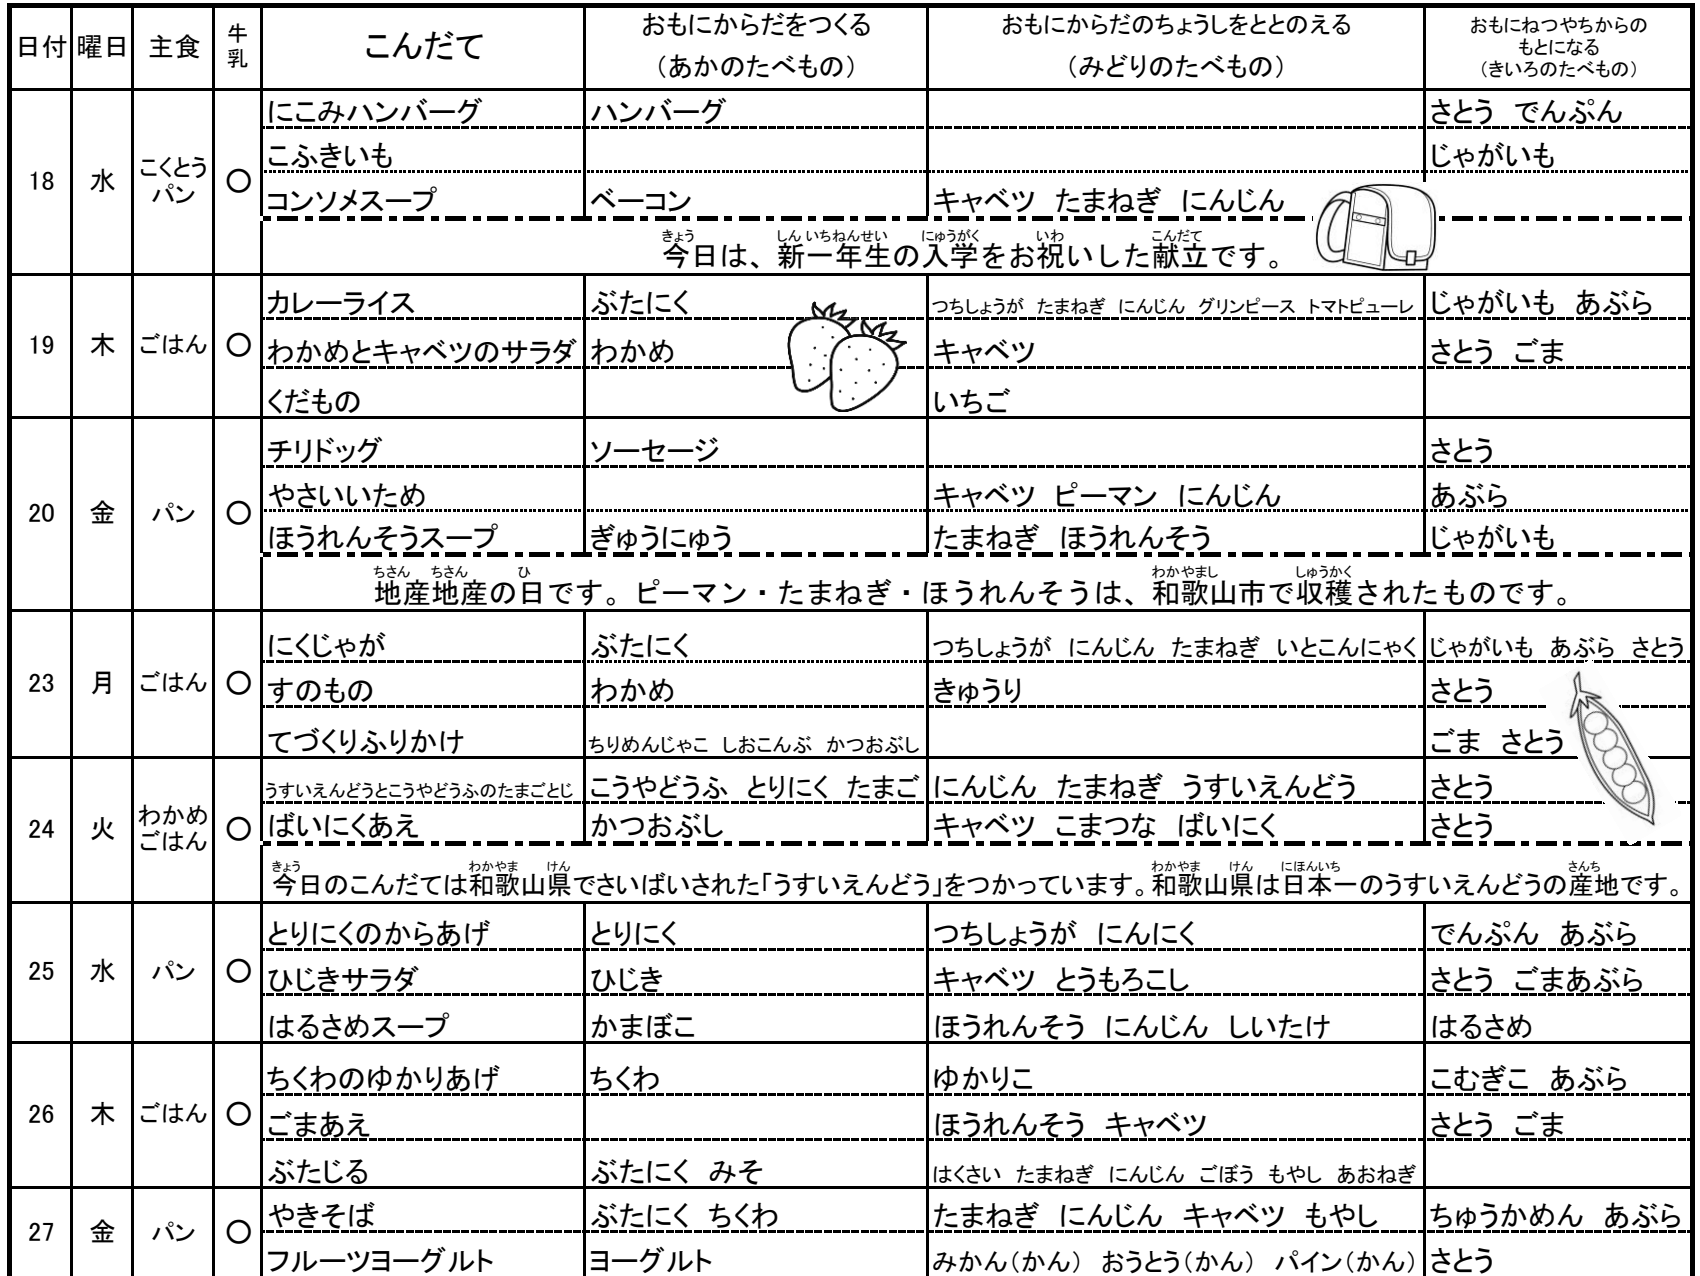 日付 曜日 主食 牛乳 こんだて おもにからだをつくる（あかのたべもの） おもにからだのちょうしをととのえる（みどりのたべもの） おもにねつやちからのもとになる（きいろのたべもの）
18 水 こくとうパン ○
にこみハンバーグ ハンバーグ さとう でんぷん
こふきいも じゃがいも
コンソメスープ ベーコン キャベツ たまねぎ にんじん
きょう しんいちねんせい にゅうがく いわ こんだて
今日は、新一年生の入学をお祝いした献立です。
19 木 ごはん ○
カレーライス ぶたにく つちしょうが たまねぎ にんじん グリンピース トマトピューレ じゃがいも あぶら
わかめとキャベツのサラダ わかめ キャベツ さとう ごま
くだもの いちご
20 金 パン ○
チリドッグ ソーセージ さとう
やさいいため キャベツ ピーマン にんじん あぶら
ほうれんそうスープ ぎゅうにゅう たまねぎ ほうれんそう じゃがいも
ちさん ちさん ひ わかやまし しゅうかく
地産地産の日です。ピーマン・たまねぎ・ほうれんそうは、和歌山市で収穫されたものです。
23 月 ごはん ○
にくじゃが ぶたにく つちしょうが にんじん たまねぎ いとこんにゃく じゃがいも あぶら さとう
すのもの わかめ きゅうり さとう
てづくりふりかけ ちりめんじゃこ しおこんぶ かつおぶし ごま さとう
24 火 わかめごはん ○
うすいえんどうとこうやどうふのたまごとじ こうやどうふ とりにく たまご にんじん たまねぎ うすいえんどう さとう
ばいにくあえ かつおぶし キャベツ こまつな ばいにく さとう
きょう わかやま けん わかやま けん にほんいち さんち
今日のこんだては和歌山県でさいばいされた「うすいえんどう」をつかっています。和歌山県は日本一のうすいえんどうの産地です。
25 水 パン ○
とりにくのからあげ とりにく つちしょうが にんにく でんぷん あぶら
ひじきサラダ ひじき キャベツ とうもろこし さとう ごまあぶら
はるさめスープ かまぼこ ほうれんそう にんじん しいたけ はるさめ
26 木 ごはん ○
ちくわのゆかりあげ ちくわ ゆかりこ こむぎこ あぶら
ごまあえ ほうれんそう キャベツ さとう ごま
ぶたじる ぶたにく みそ はくさい たまねぎ にんじん ごぼう もやし あおねぎ
27 金 パン ○
やきそば ぶたにく ちくわ たまねぎ にんじん キャベツ もやし ちゅうかめん あぶら
フルーツヨーグルト ヨーグルト みかん（かん） おうとう（かん） パイン（かん） さとう